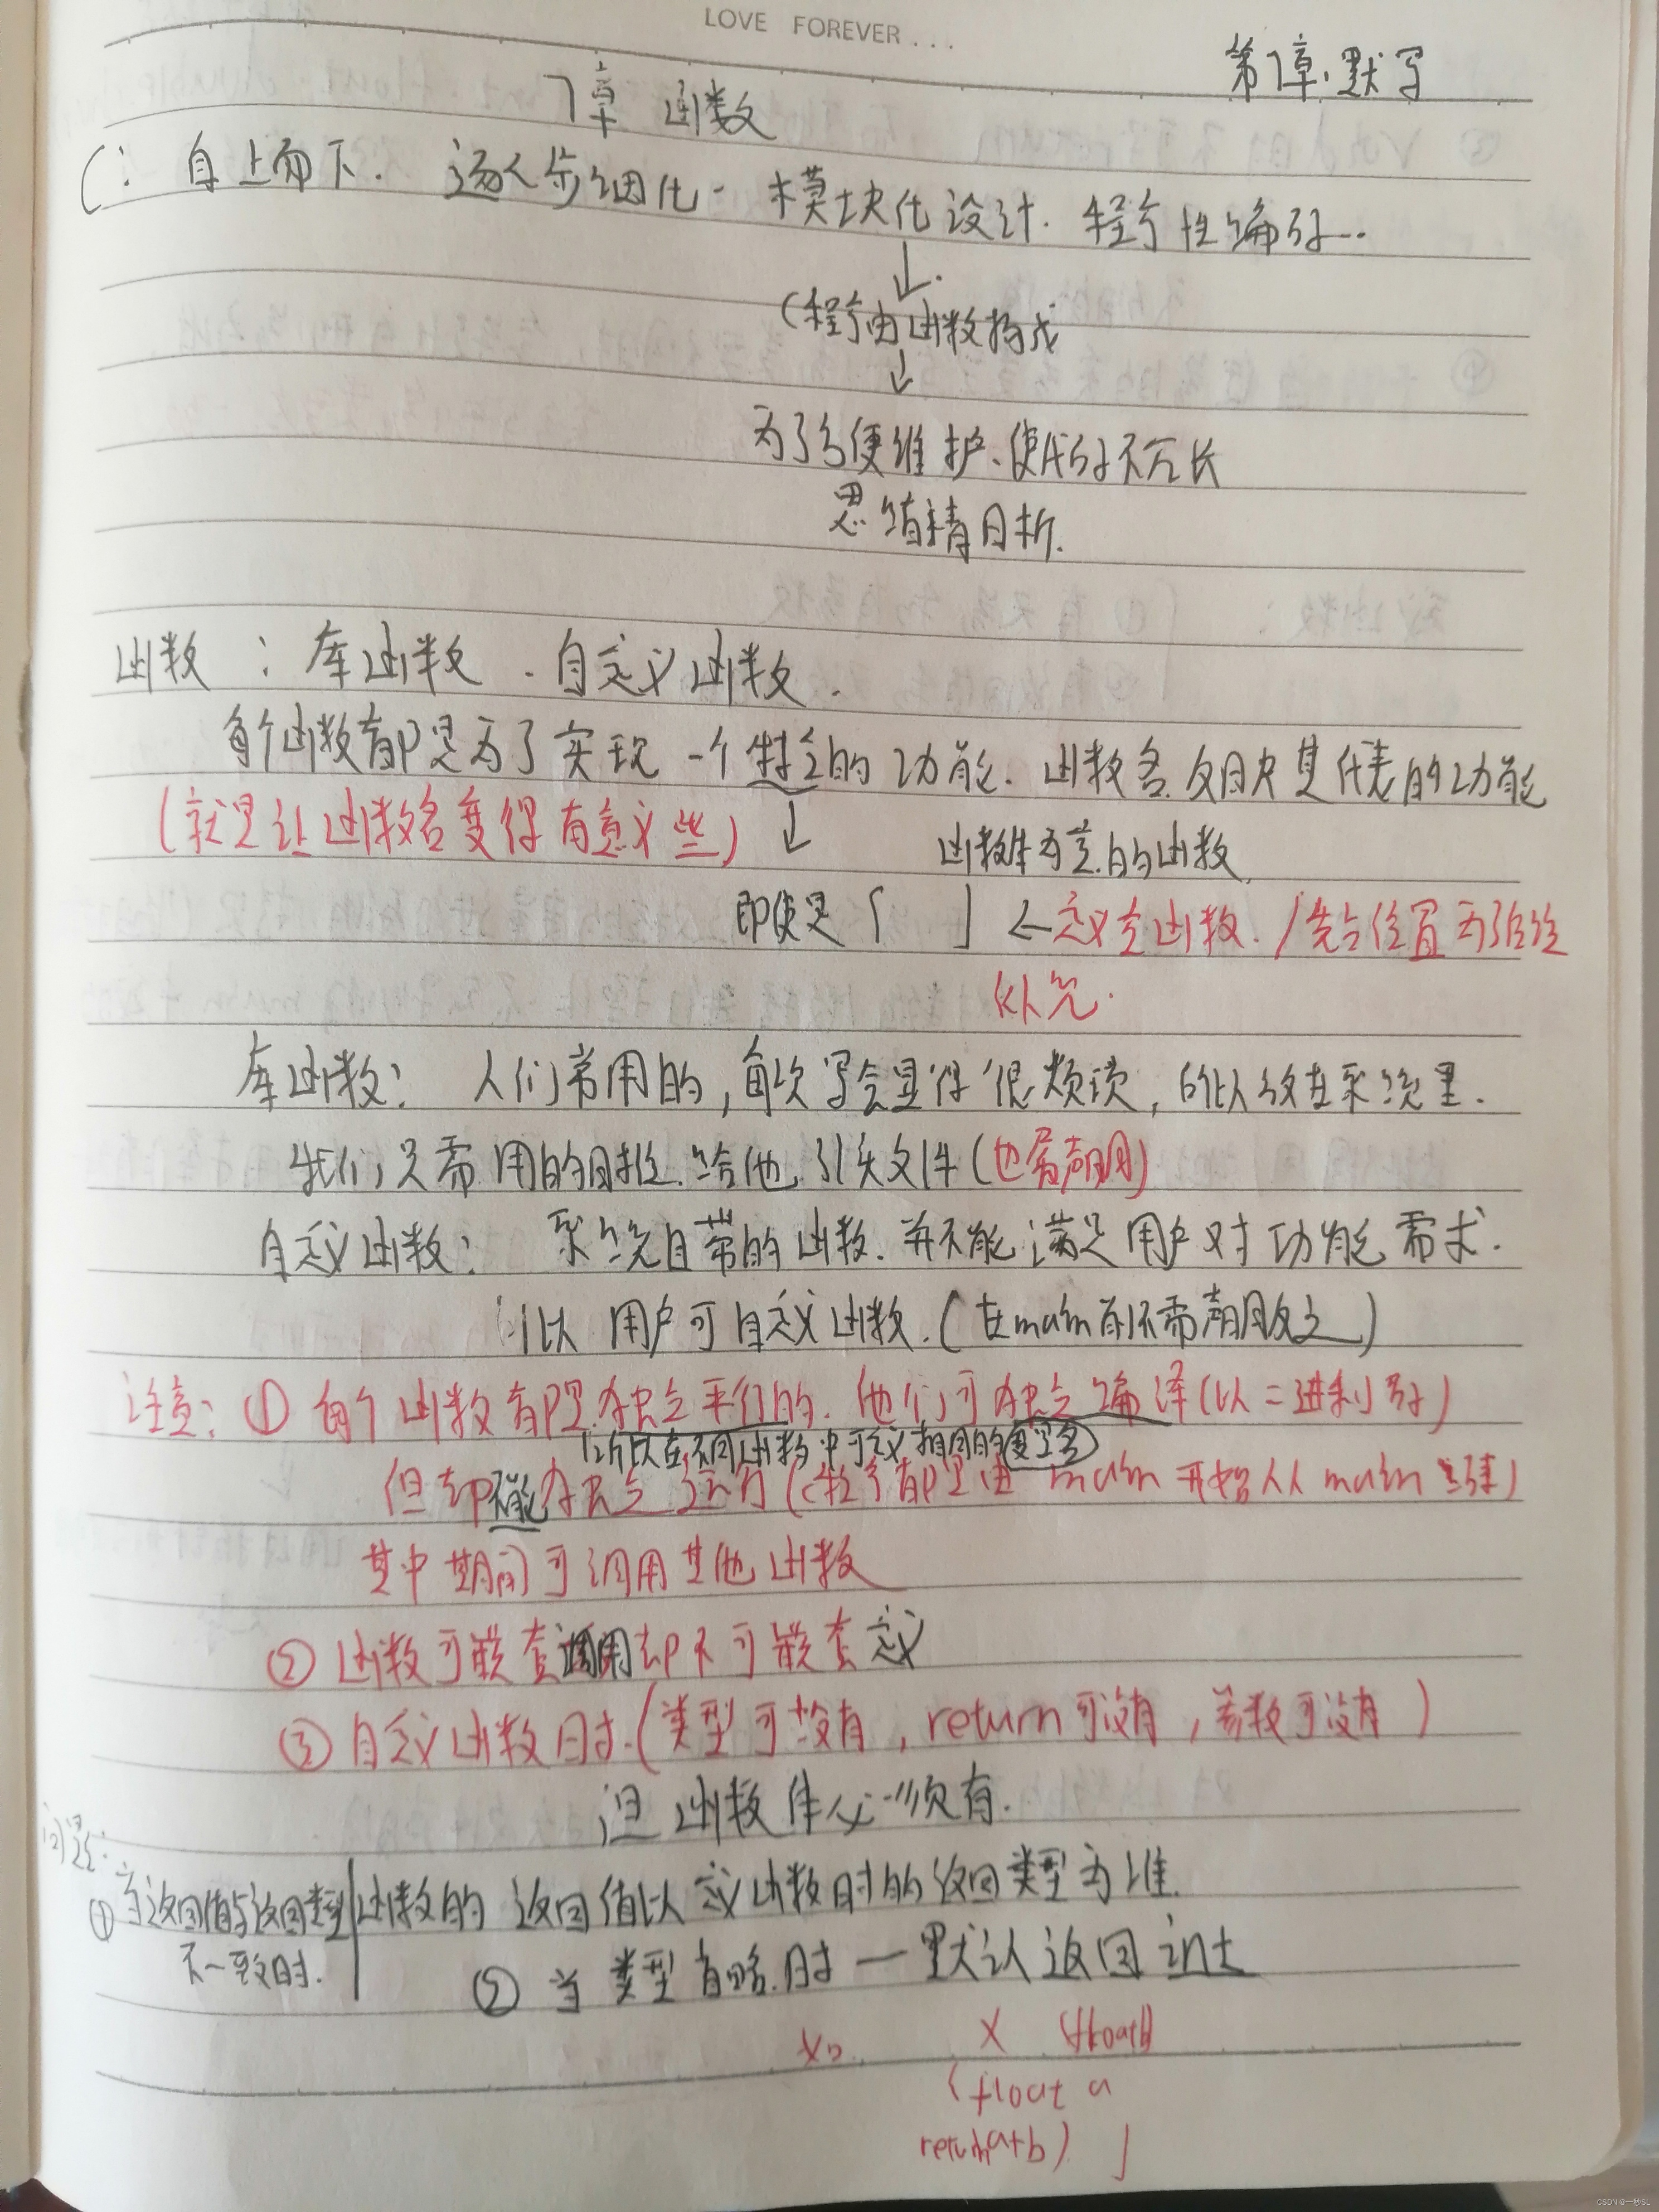 LOVE FOREVER...
第7章.默写
7章 函数
C: 自上而下. 逐步细化. 模块化设计. 程序性编码..
(程序由函数构成
为了方便维护.使代码不冗长
思维精
函数 : 库函数 . 自定义函数.
每个函数都是为了实现一个特定的功能. 函数名反映其代表的功能
(就是让函数名变得有意义些)
函数体为空的函数
即使是{ } ←定义空函数./先占位置为了后续
补充.
库函数: 人们常用的,每次写会显得很烦琐,所以放在系统里.
我们只需用的时候.给他.引头文件(也属声明)
自定义函数: 系统自带的函数.并不能满足用户对功能需求.
所以用户可自定义函数.(在main前不需声明反之)
注意: ① 每个函数都是独立平行的.他们可独立编译(以二进制码)
所以在不同函数中可定义相同的变量名
但却不能独立运行(程序都是由main开始从main结束)
其中期间可调用其他函数
② 函数可嵌套调用却不可嵌套定义
③ 自定义函数时.(类型可没有,return可没有,参数可没有)
但函数体必须有.
问题:
① 当返回值与返回类型 函数的返回值以定义函数时的返回类型为准.
不一致时.
② 当类型省略.时—默认返回int
X (float)
(float a
return a+b) }